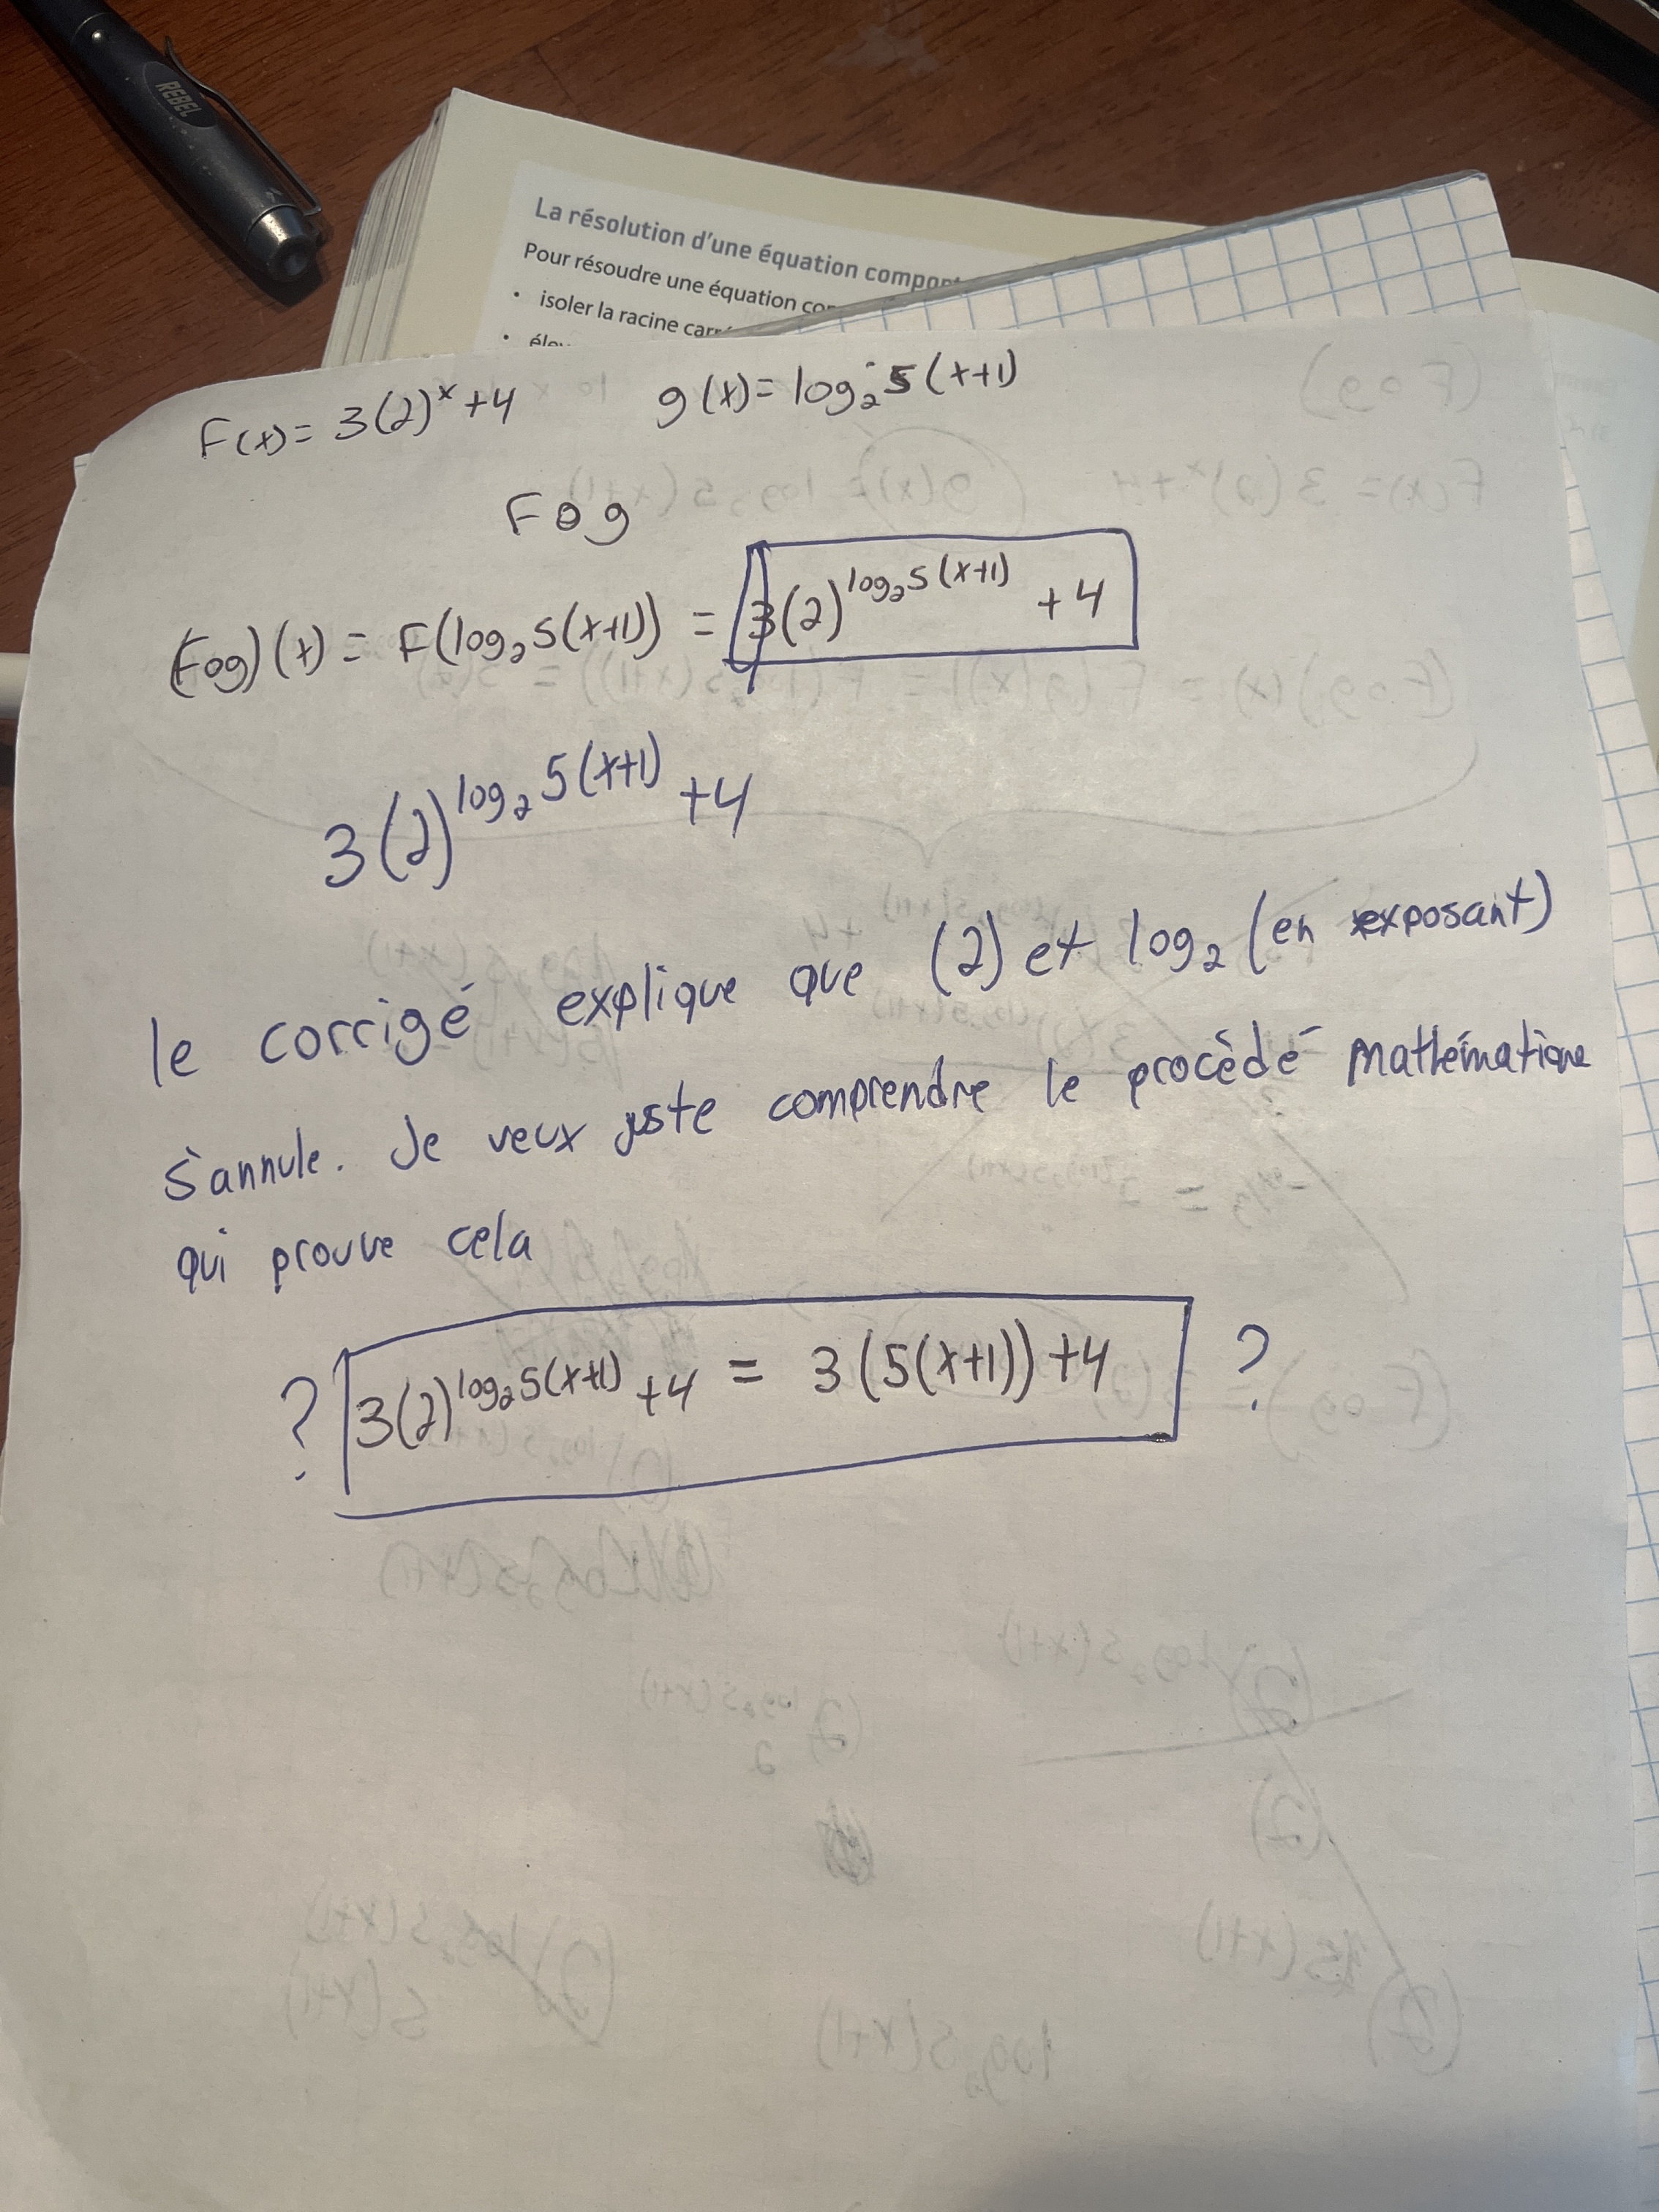 REBEL
La résolution d'une équation comport
Pour résoudre une équation co
• isoler la racine carr
• éle
F(x)= 3(2)ˣ+4 g(x)= log₂ 5(x+1)
Fog
(Fog)(x) = F(log₂5(x+1)) = 3(2)^log₂5(x+1) +4
3(2)^log₂5(x+1) +4
le corrigé explique que (2) et log₂ (en exposant)
s'annule. Je veux juste comprendre le procèdé mathématique
qui prouve cela
? 3(2)^log₂5(x+1) +4 = 3(5(x+1))+4 ?